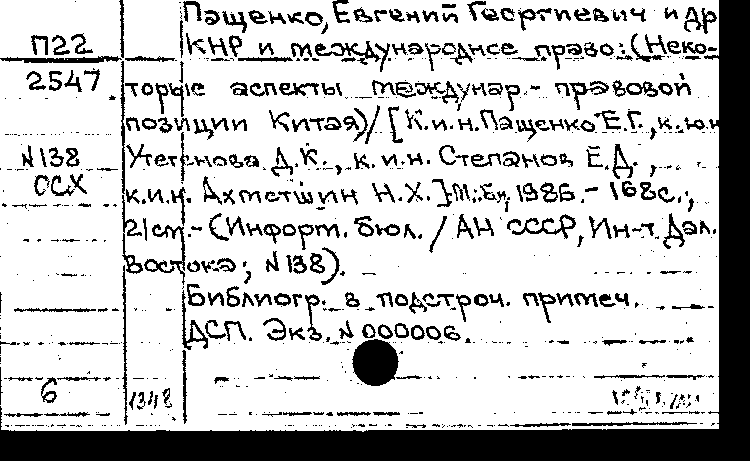 Пащенко, Евгений Георгиевич и др
П22 КНР и международное право: (Неко-
2547 торые аспекты междунар.-правовой
позиции Китая)/ [К.и.н. Пащенко Е.Г., к.ю.н
N138 Утегенова Д.К., к.и.н. Степанов Е.Д.,
ОСХ к.и.н. Ахметшин Н.Х.] М.: Б.и, 1986.- 168с.;
21см.- (Информ. бюл. / АН СССР, Ин-т Дал.
Востока; N138).
Библиогр. в подстроч. примеч.
ДСП. Экз. N 000006.
6 1348